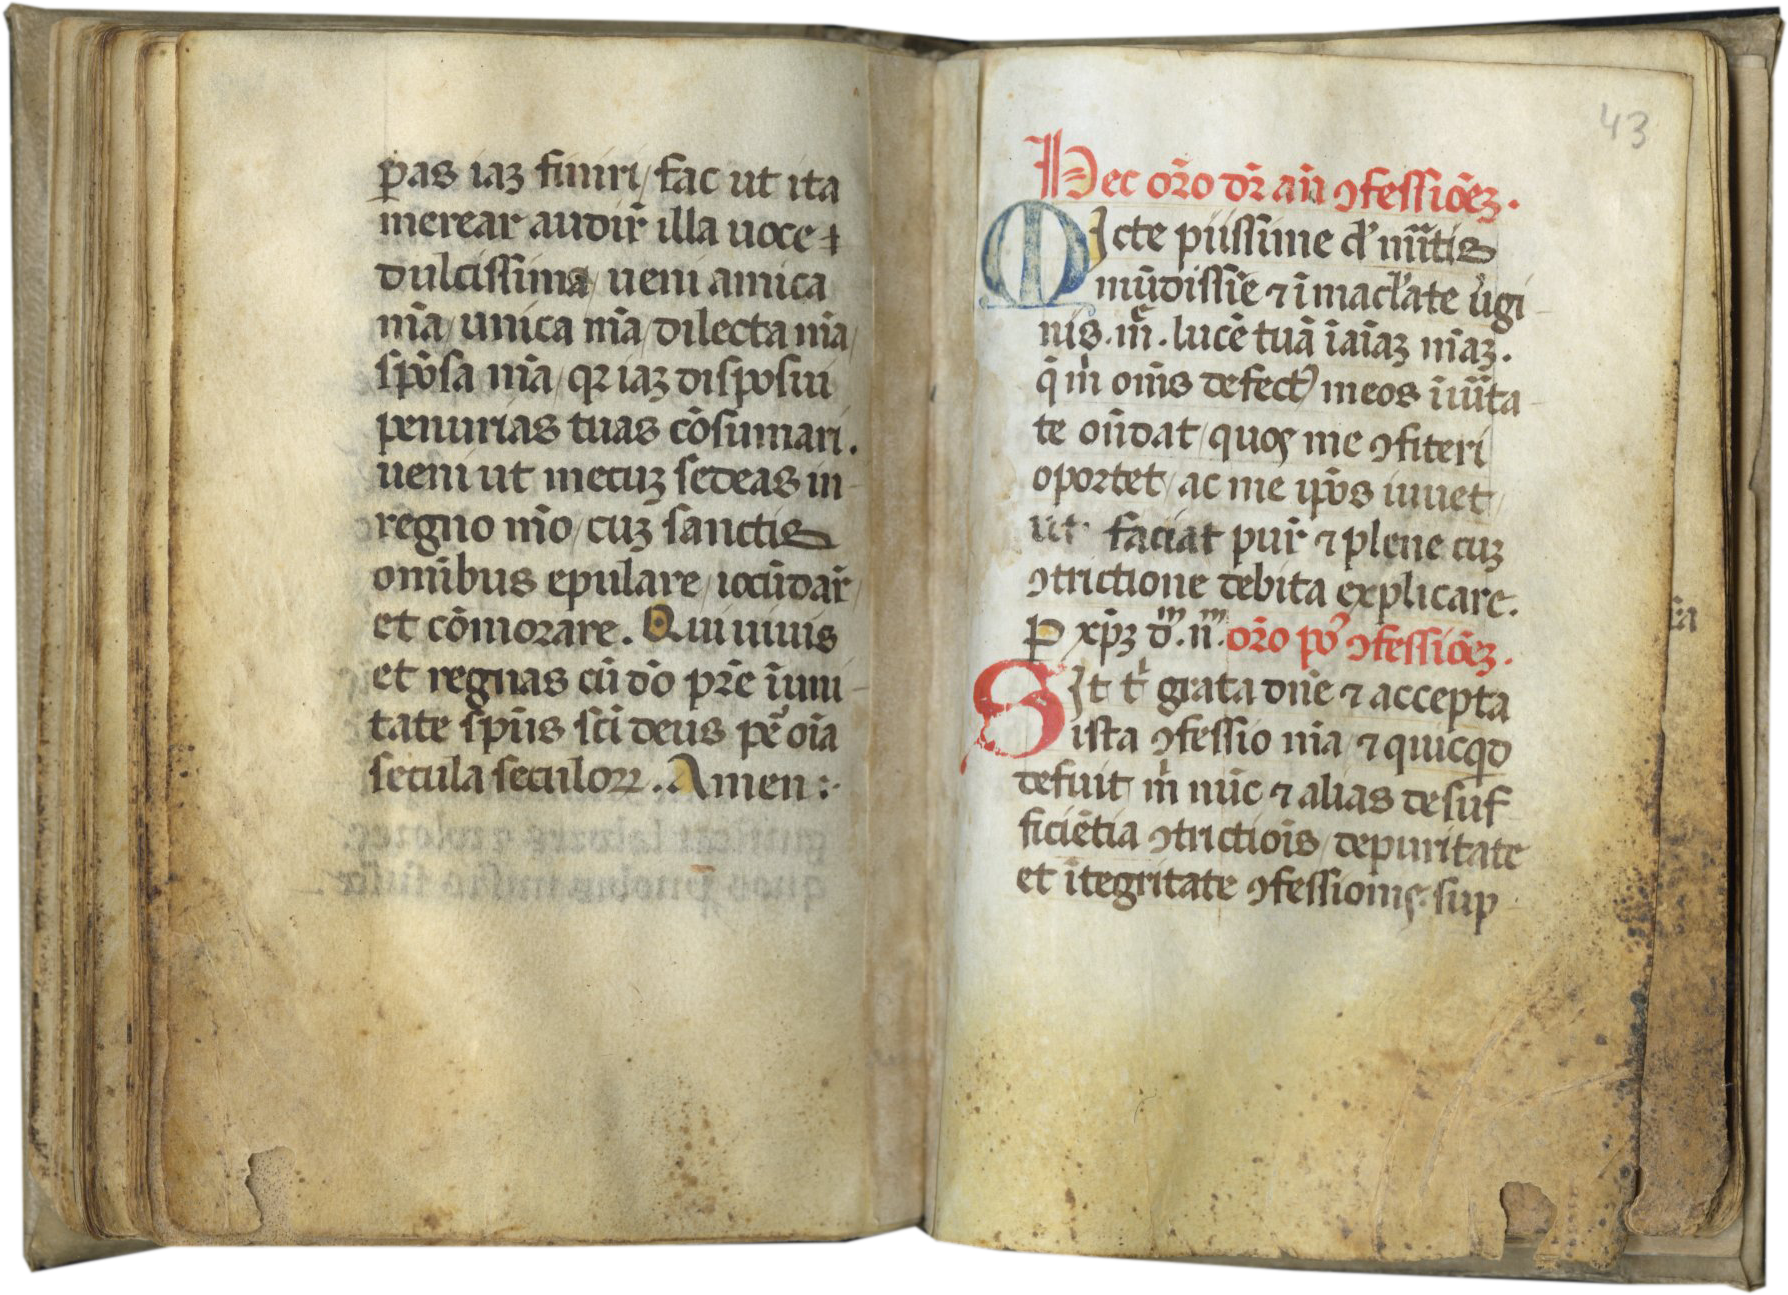 ꝑas iaꝫ finiri / fac ut ita
merear audir̃ illa uoce ⁊
dulcissima / ueni amica
mĩa / unica mĩa / dilecta mĩa /
spõsa mĩa / qꝛ iaꝫ disposui
penurias tuas cõsumari .
ueni ut mecuꝫ sedeas in -
regno mĩo / cuꝫ sanctis
omĩbus epulare / iocũdar̃ /
et cõmorare . Qui uiuis
et regnas cũ dõ pr̃e ĩ uni -
tate sp̃ũs sc̃i deus per oĩa
secula seculoꝝ . Amen :
43
Hec or̃o dr̃ añ ꝯfessiõeꝫ .
Micte piissime d' ms̃tis
mũdissĩe ⁊ ĩmacl'ate ũgi -
nis . m̃ . lucẽ tuã ĩ aĩaꝫ mĩaꝫ .
q̃ m̃ om̃s defectꝰ meos ĩ uĩta -
te oñdat / quos me ꝯfiteri
oportet / ac me ip̃os iuuet /
ut faciat pur̃ ⁊ plene cuꝫ
ꝯtrictione debita explicare .
P xp̃ꝫ d̃ . ñ . or̃o pꝰ ꝯfessiõeꝫ .
Sit t' grata dñe ⁊ accepta
ista ꝯfessio mĩa / ⁊ quicqd
defuit m̃ nũc ⁊ alias de suf
ficiẽtia ꝯtrictiõis / de puritate
et ĩtegritate ꝯfessionis . sup